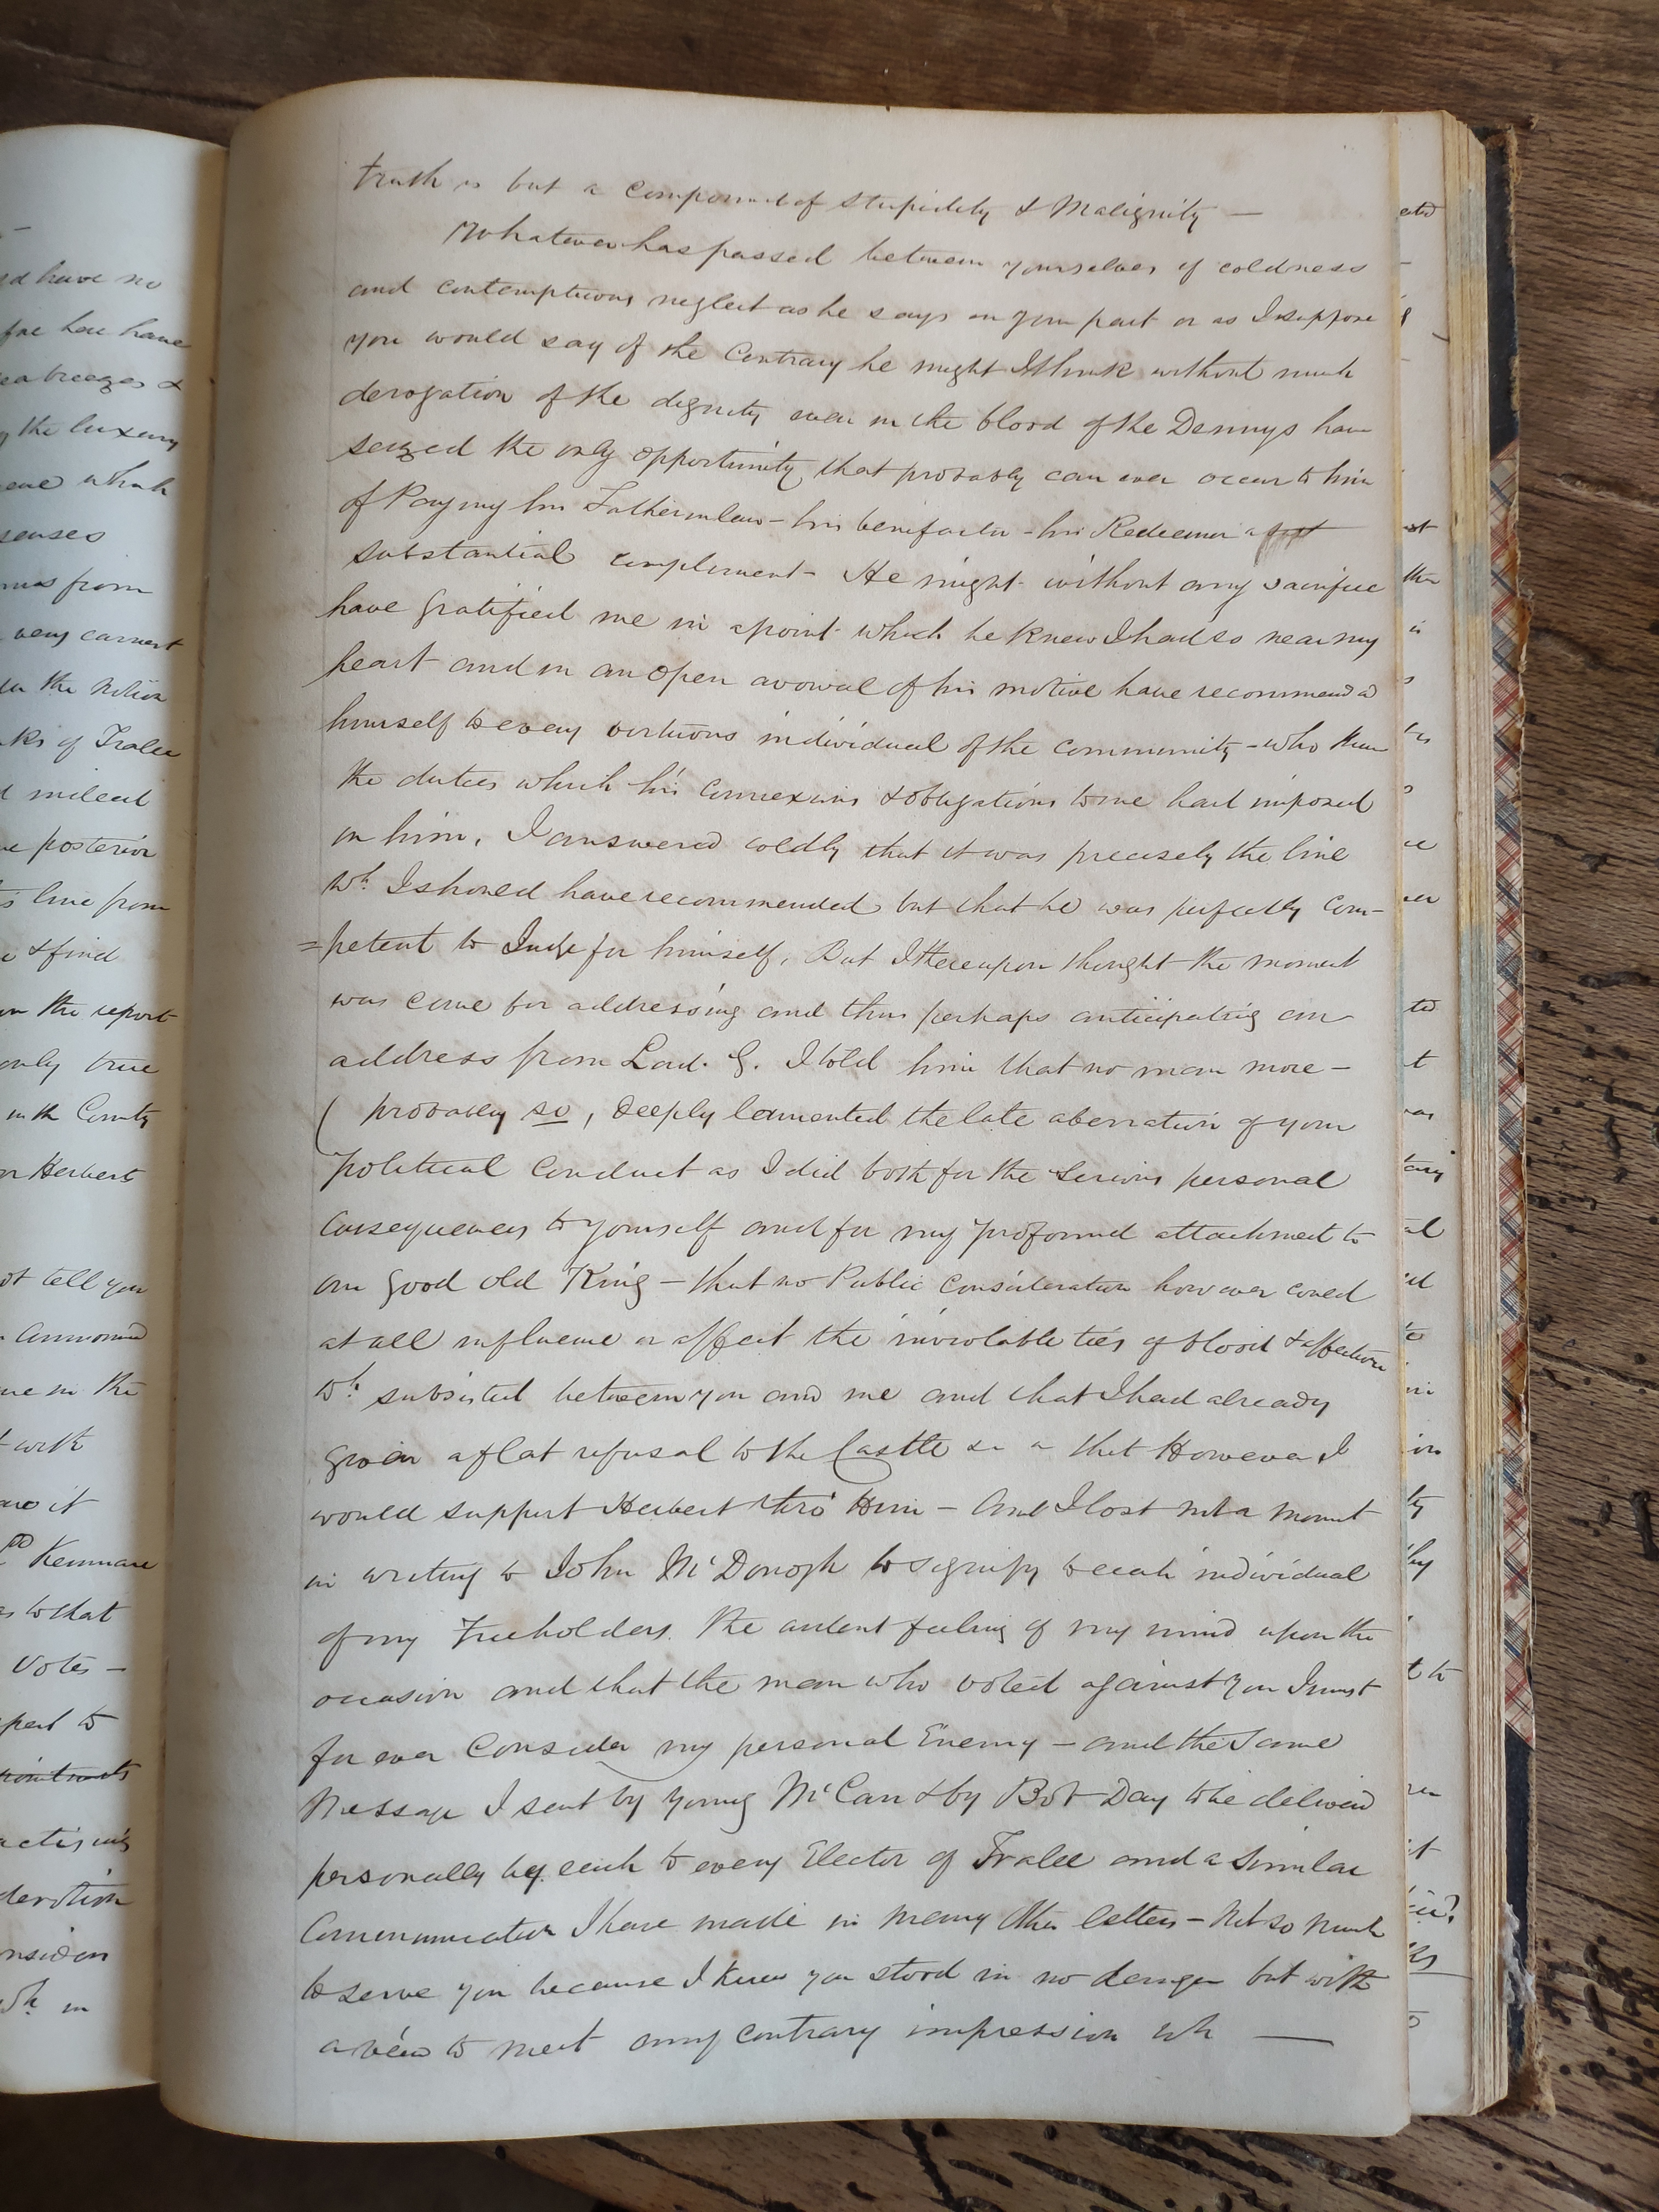 truth is but a compound of stupidity & Malignity —
Whatever has passed between yourselves of coldness
and contemptuous neglect as he says on your part or as I suppose
you would say of the Contrary he might I think without much
derogation of the dignity even in the blood of the Dennys have
seized the only opportunity that probably can ever occur to him
of Paying his Father in law – his benifactor – his Redeemer a
substantial compliment – He might without any sacrifice
have gratified me in a point which he knew I had so near my
heart and in an open avowal of his motive have recommended
himself to every virtuous individual of the community – who knew
the duties which his connexions & obligations to me had imposed
on him. I answered coldly that it was precisely the line
wh. I should have recommended but that he was perfectly com-
=petent to Judge for himself. But I thereupon thought the moment
was come for addressing and thus perhaps anticipating an
address from Lord. G. I told him that no man more –
( probably so, deeply lamented the late aberration of your
political conduct as I did both for the serious personal
consequences to yourself and for my profound attachment to
our good old King – that no Public consideration however could
at all influence or affect the inviolable ties of blood & affection
wh. subsisted between you and me and that I had already
given a flat refusal to the Castle that However I
would support Herbert thro' Him – And I lost not a moment
in writing to John McDonogh to signify to each individual
of my Freeholders. The ardent feeling of my mind upon the
occasion and that the man who voted against you I must
for ever consider my personal Enemy – and the Same
Message I sent by young McCan & by Bob Day to be deliverd
personally by each to every Elector of Tralee and a similar
Communication I have made in many other letters – Not so much
to serve you because I knew you stood in no danger but with
a view to meet any contrary impression wh —
d have no
have
breezes &
the luxury
which
senses
from
very earnest
the notion
of Tralee
posterior
line from
& find
on the report
only true
in the County
or Herbert
not tell you
in the
with
it
Kenmare
as to that
Votes –
to
devotion
wh. in